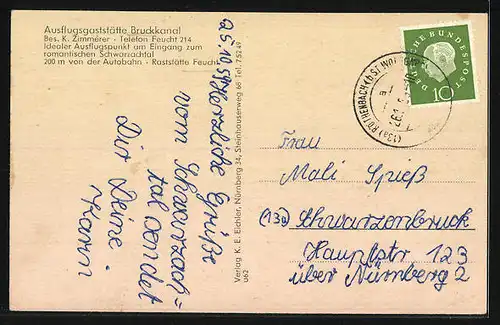 Ausflugsgaststätte Bruckkanal
Bes. K. Zimmerer · Telefon Feucht 214
Idealer Ausflugspunkt am Eingang zum
romantischen Schwarzachtal
200 m von der Autobahn - Raststätte Feucht
25.10.59
Herzliche Grüße
vom Schwarzach=
tal sendet
Dir Deine
Karin
Verlag K. E. Eichler, Nürnberg 34, Steinhauserweg 66 Tel. 75249
062
DEUTSCHE BUNDESPOST
10
(13a) RÖTHENBACH (b ST. WOLFGANG)
Frau
Mali Spieß
(13a) Schwarzenbruck
Hauptstr 123
über Nürnberg 2